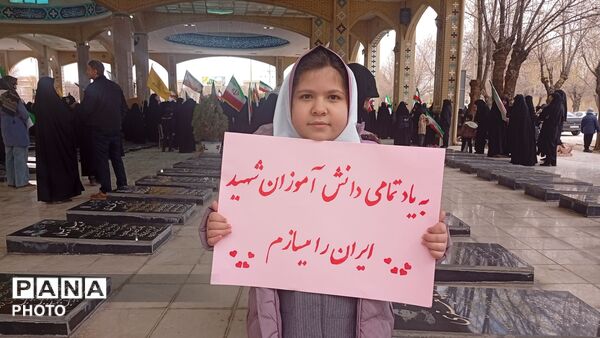 به یاد تمامی دانش آموزان شهید
ایران را میسازم
PANA
PHOTO